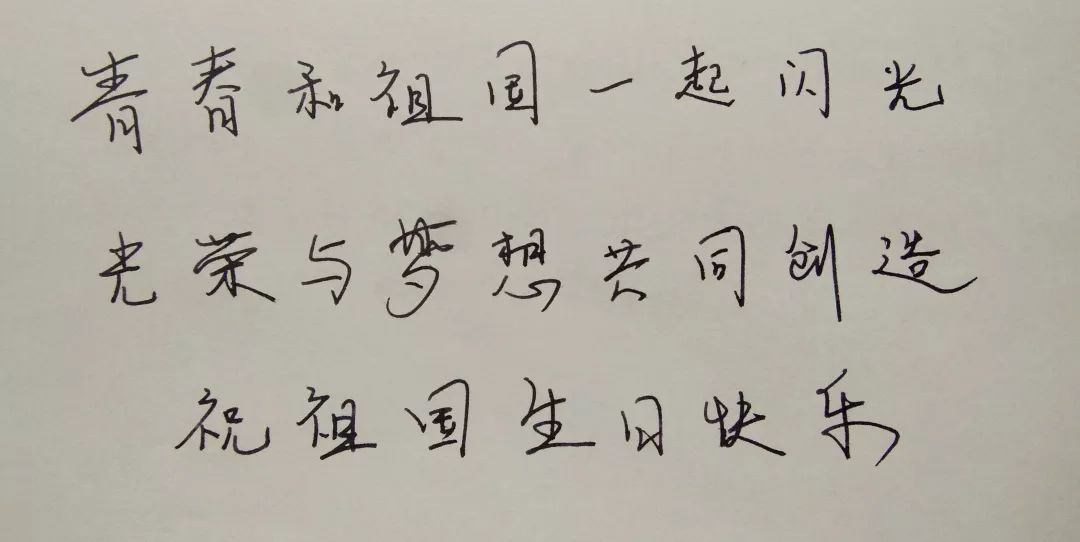 青春和祖国一起闪光
光荣与梦想共同创造
祝祖国生日快乐